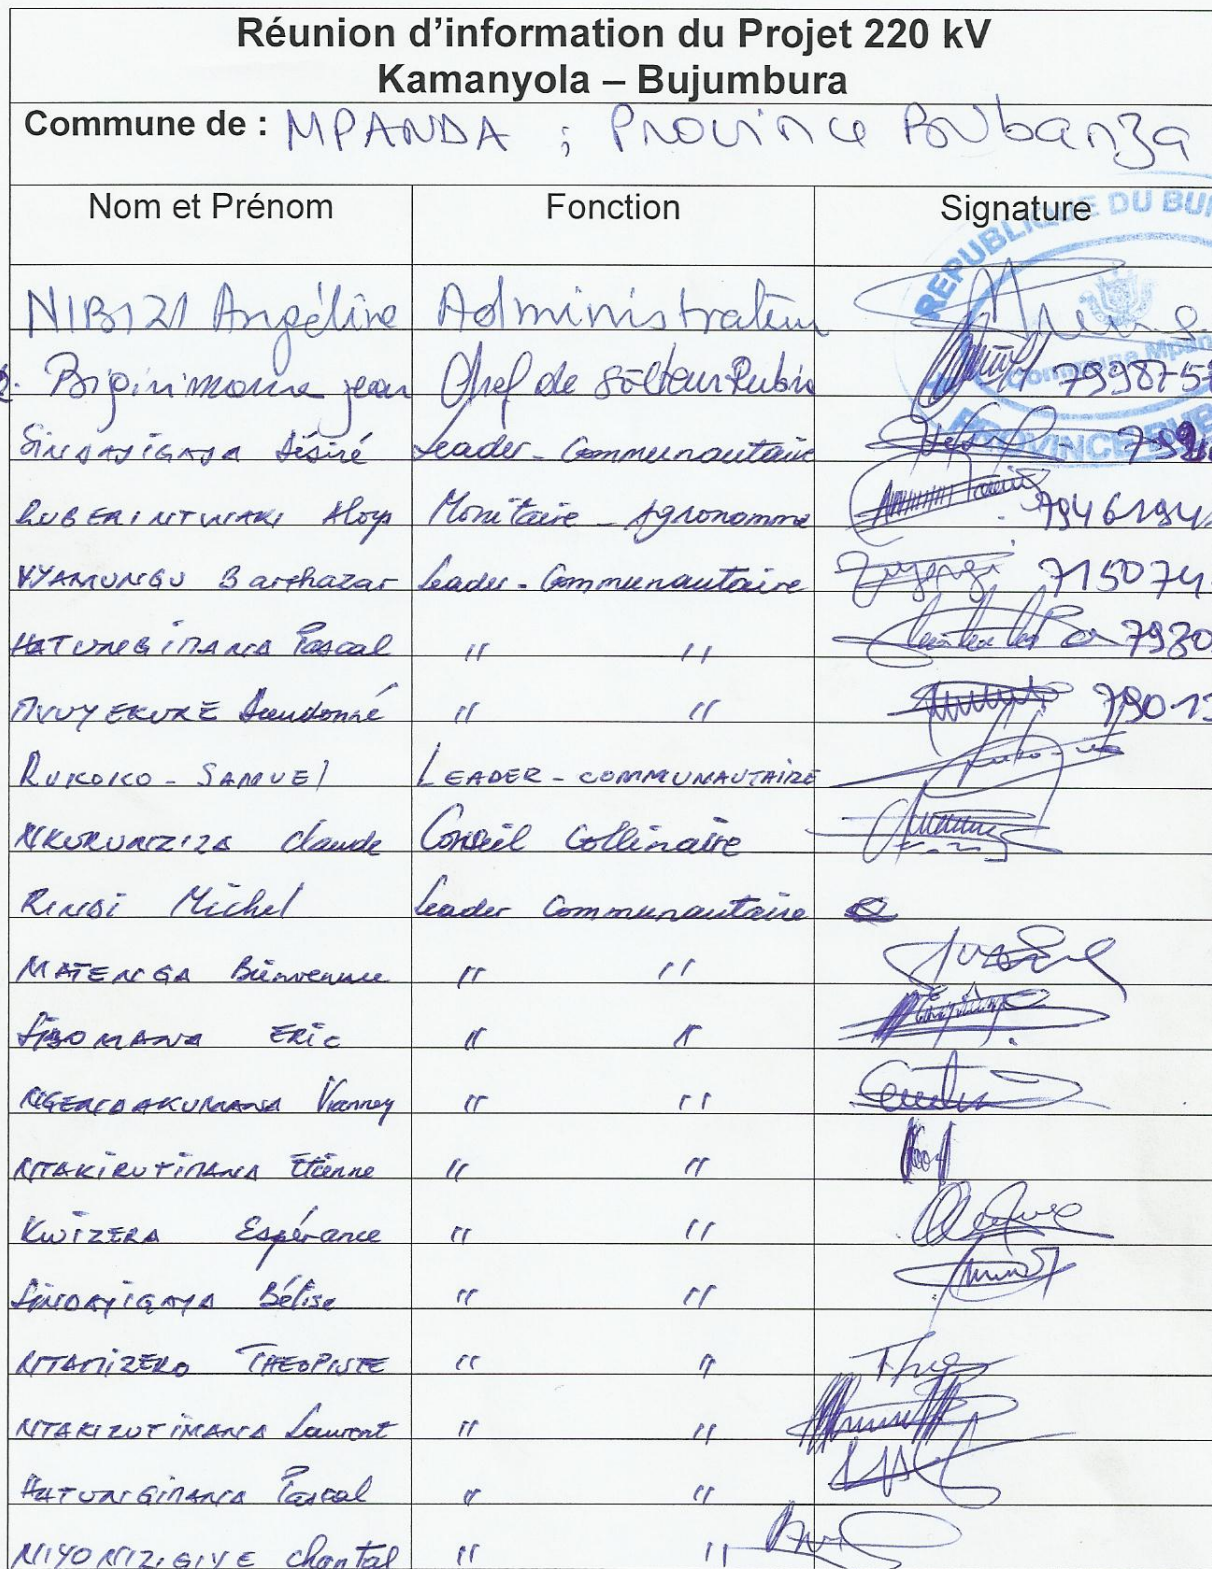 Réunion d'information du Projet 220 kV
Kamanyola – Bujumbura
Commune de : MPANDA ; Province Bubanza
Nom et Prénom Fonction Signature
REPUBLIQUE DU BU
NIBIZI Angéline Administrateur
Bigirimana jean Chef de secteur Rubira 799875
Commune Mpan
SINDAYIGAYA Désiré Leader - Communautaire 799
PROVINCE BUB
RUBERINTWARI Aloys Monitaire - Agronomme 7946194
VYAMUNGU Barthazar Leader - Communautaire 715074
HATUNGIMANA Pascal " " 7930
MVUYEKURE Dieudonné " " 79013
RUKOKO - SAMUEL LEADER - COMMUNAUTAIRE
NKURUNZIZA Claude Conseil Collinaire
RINDI Michel Leader Communautaire
MATENGA Bienvenue " "
SIBOMANA ERIC " "
NGENDAKUMANA Vianney " "
NTAKIRUTIMANA Etienne " "
KWIZERA Espérance " "
SINDAYIGAYA Bélise " "
NTAMIZERO THEOPISTE " " Theo
NTAKIZUTIMANA Laurent " "
HATUNGIMANA Pascal " "
NIYONIZIGIYE Chantal " "